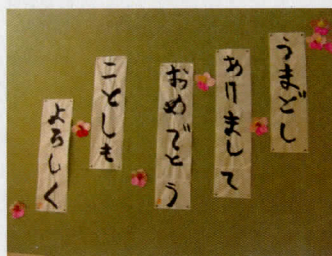 うまどし
あけまして
おめでとう
ことしも
よろしく